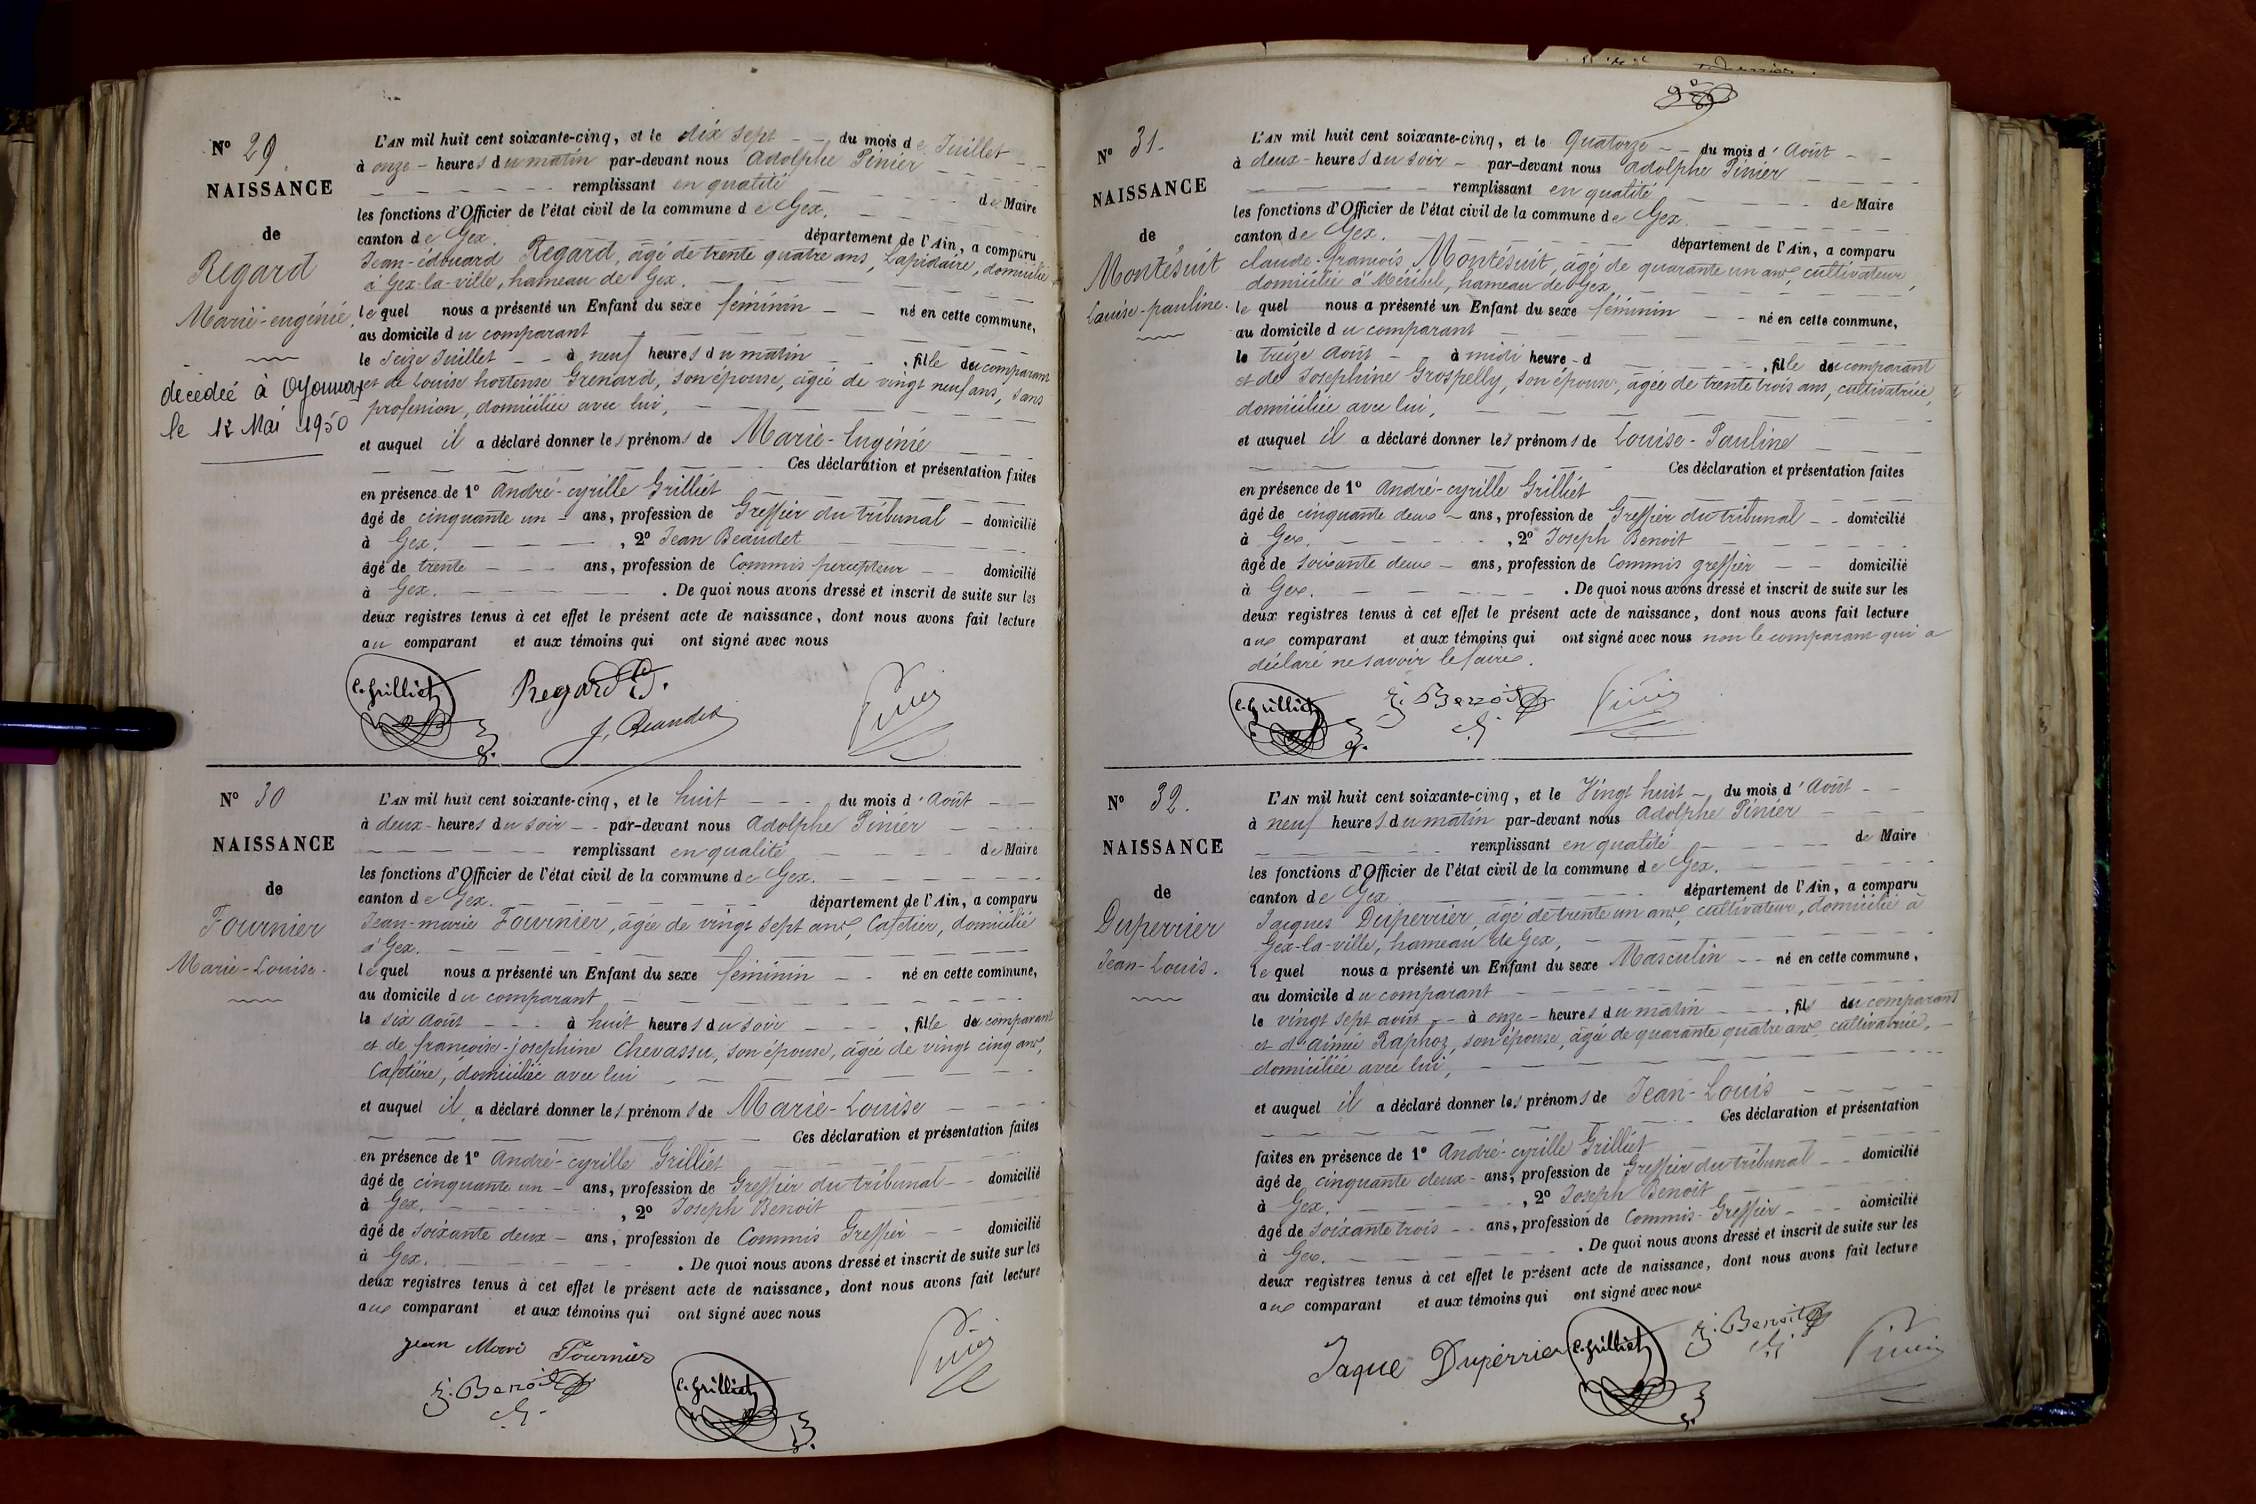 Nº 29.
NAISSANCE
de
Regard
Marie-eugénie.
décédée à Oyonnax
le 12 Mai 1950
L'AN mil huit cent soixante-cinq, et le dix sept - - du mois de Juillet - -
à onze - heures du matin par-devant nous Adolphe Pinier - - - -
- - - - - - remplissant en qualité - - - - - de Maire
les fonctions d'Officier de l'état civil de la commune de Gex. - - - -
canton de Gex. - - - - - département de l'Ain, a comparu
Jean-édouard Regard, âgé de trente quatre ans, Lapidaire, domicilié
à Gex-la-ville, hameau de Gex. - - - - - -
lequel nous a présenté un Enfant du sexe féminin - - né en cette commune,
au domicile du comparant - - - - - - -
le Seize Juillet - - à neuf heures du matin - - , fille du comparant
et de Louise hortense Grenard, son épouse, âgée de vingt neuf ans, sans
profession, domiciliée avec lui, - - - - - - -
et auquel il a déclaré donner les prénoms de Marie-Eugénie - - -
- - - - - - - Ces déclaration et présentation faites
en présence de 1º André-cyrille Grilliet - - - - -
âgé de cinquante un - ans, profession de Greffier du tribunal - domicilié
à Gex. - - - - , 2º Jean Beaudet - - - -
âgé de trente - - - ans, profession de Commis percepteur - - domicilié
à Gex. - - - - - . De quoi nous avons dressé et inscrit de suite sur les
deux registres tenus à cet effet le présent acte de naissance, dont nous avons fait lecture
au comparant et aux témoins qui ont signé avec nous
C. Grilliet Regard Pinier
J. Beaudet
Nº 30
NAISSANCE
de
Fournier
Marie-Louise.
L'AN mil huit cent soixante-cinq, et le huit - - - du mois d'Août - -
à deux - heures du soir - - par-devant nous Adolphe Pinier - - - -
- - - - - - remplissant en qualité - - - - de Maire
les fonctions d'Officier de l'état civil de la commune de Gex. - - - - - -
canton de Gex. - - - - - - département de l'Ain, a comparu
Jean-marie Fournier, âgée de vingt sept ans, Cafetier, domicilié
à Gex. - - - - - - - - -
lequel nous a présenté un Enfant du sexe féminin - - né en cette commune,
au domicile du comparant - - - - - - - -
le six Août - - - à huit heures du soir - - - , fille du comparant
et de françoise-josephine Chevassu, son épouse, âgée de vingt cinq ans,
Cafetière, domiciliée avec lui - - - - - - -
et auquel il a déclaré donner les prénoms de Marie-Louise - - - -
- - - - - - - Ces déclaration et présentation faites
en présence de 1º André-cyrille Grilliet - - - - -
âgé de cinquante un - ans, profession de Greffier du tribunal - - domicilié
à Gex. - - - - - , 2º Joseph Benoit - - - -
âgé de soixante deux - ans, profession de Commis Greffier - domicilié
à Gex. - - - - - . De quoi nous avons dressé et inscrit de suite sur les
deux registres tenus à cet effet le présent acte de naissance, dont nous avons fait lecture
aux comparant et aux témoins qui ont signé avec nous
Jean Marie Fournier Pinier
J. Benoit C. Grilliet
Nº 31.
NAISSANCE
de
Montésuit
Louise-pauline.
L'AN mil huit cent soixante-cinq, et le Quatorze - - du mois d'Août - -
à deux - heures du soir - par-devant nous Adolphe Pinier - - - -
- - - - - remplissant en qualité - - - - de Maire
les fonctions d'Officier de l'état civil de la commune de Gex - - - - - -
canton de Gex. - - - - - département de l'Ain, a comparu
claude-françois Montésuit, âgé de quarante un ans, cultivateur,
domicilié à Méribel, hameau de Gex - - - - - -
lequel nous a présenté un Enfant du sexe féminin - - né en cette commune,
au domicile du comparant - - - - - - -
le treize Août - à midi heure - d - - - - , fille du comparant
et de Josephine Grospelly, son épouse, âgée de trente trois ans, cultivatrice,
domiciliée avec lui, - - - - - - -
et auquel il a déclaré donner les prénoms de Louise-Pauline - - - -
- - - - - - - Ces déclaration et présentation faites
en présence de 1º André-cyrille Grilliet - - - - -
âgé de cinquante deux - ans, profession de Greffier du tribunal - - domicilié
à Gex. - - - - - , 2º Joseph Benoit - - - - -
âgé de soixante deux - ans, profession de Commis greffier - - domicilié
à Gex. - - - - - - . De quoi nous avons dressé et inscrit de suite sur les
deux registres tenus à cet effet le présent acte de naissance, dont nous avons fait lecture
aux comparant et aux témoins qui ont signé avec nous non le comparant qui a
déclaré ne savoir le faire.
C. Grilliet J. Benoit Pinier
Nº 32.
NAISSANCE
de
Duperrier
Jean-Louis.
L'AN mil huit cent soixante-cinq, et le Vingt huit - du mois d'Août - -
à neuf heures du matin par-devant nous Adolphe Pinier - - - -
- - - - - remplissant en qualité - - - - - de Maire
les fonctions d'Officier de l'état civil de la commune de Gex. - - - - -
canton de Gex - - - - - département de l'Ain, a comparu
Jacques Duperrier, âgé de trente un ans, cultivateur, domicilié à
Gex-la-ville, hameau de Gex, - - - - - -
lequel nous a présenté un Enfant du sexe Masculin - - né en cette commune,
au domicile du comparant - - - - - - - -
le vingt sept août - - à onze - heures du matin - - - , fils du comparant
et d'aimée Raphoz, son épouse, âgée de quarante quatre ans cultivatrice, -
domiciliée avec lui, - - - - - - - -
et auquel il a déclaré donner les prénoms de Jean-Louis - - - -
- - - - - - - Ces déclaration et présentation
faites en présence de 1º André-cyrille Grilliet - - - - -
âgé de cinquante deux - ans, profession de Greffier du tribunal - - domicilié
à Gex. - - - - - , 2º Joseph Benoit - - - -
âgé de soixante trois - - ans, profession de Commis-Greffier - - - domicilié
à Gex. - - - - - - . De quoi nous avons dressé et inscrit de suite sur les
deux registres tenus à cet effet le présent acte de naissance, dont nous avons fait lecture
aux comparant et aux témoins qui ont signé avec nous
Jaque Duperrier C. Grilliet J. Benoit Pinier